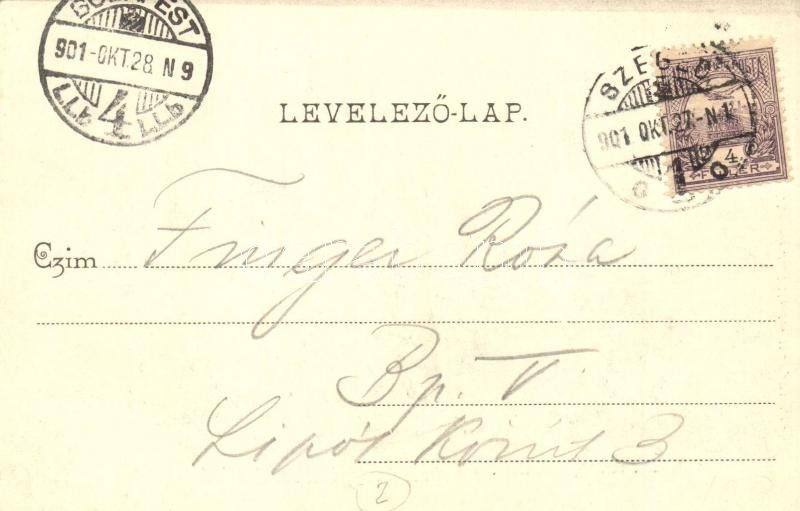 BUDAPEST
901-OKT.28 N 9
4
LEVELEZŐ-LAP.
SZEG
901 OKT.27-N.1
4
FILLÉR
Czim Finger Róza
Bp. V.
Lipót Körút 3
2